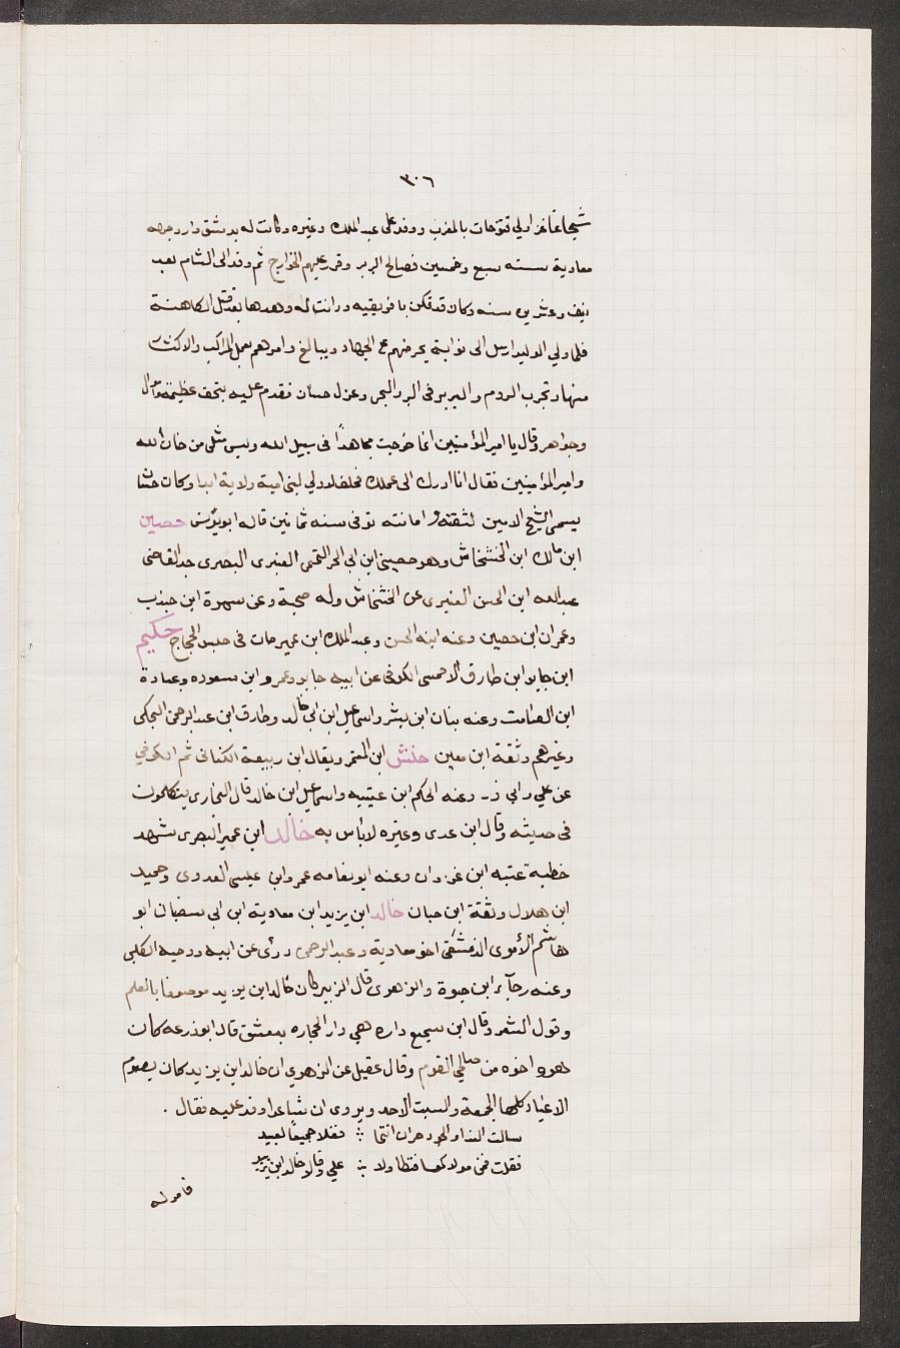 ٣٠٦
شجاعا غزا ولي فتوحات بالمغرب ووفد على عبد الملك وغيره وكانت له بدمشق دار وجهه
معاوية سنة سبع وخمسين فصالح البربر وقرر عليهم الخراج ثم وفد الى الشام بعد
نيف وعشرين سنه وكان قد تمكن بافريقيه ودانت له وهدها بقتل الكاهنة
فلما ولي الوليد ارسل الى نوابته يحرضهم على الجهاد ويبالغ وامرهم بعمل المراكب والاكثار
منها وتحرب الروم والبربر في البر والبحر وعزل حسان فقدم عليه بتحف عظيمة واموال
وجواهر وقال يا امير المؤمنين انما خرجت مجاهدًا في سبيل الله وليس مثلي من خان الله
وامير المؤمنين فقال انا اردك الى عملك فحلف لا ولي لبني امية ولاية ابدا وكان حسان
يسمى الشيخ الامين لثقته وامانته توفى سنه ثمانين قاله ابو يونس حصين
ابن مالك ابن الخشخاش وهو حصين ابن ابي الحر التميمي العنبرى البصرى جد القاضى
عبد الله ابن الحسن العنبرى عن الخشخاش وله صحبة وعن سمرة ابن جندب
وعمران ابن حصين وعنه ابنه الحسن وعبد الملك ابن عمير مات فى حبس الحجاج حكيم
ابن جابر ابن طارق الاحمسى الكوفى عن ابيه جابر وعمر وابن مسعود وعبادة
ابن الصامت وعنه بنان ابن بشر واسماعيل ابن ابي خالد وطارق ابن عبد الرحمن البجلى
وغيرهم وثقة ابن معين حنش ابن المعتمر ويقال ابن ربيعة الكنانى ثم الكوفي
عن علي وابي ذر وعنه الحكم ابن عتيبه واسماعيل ابن خالد قال البخارى يتكلمون
فى حديثه وقال ابن عدى وغيره لا باس به خالد ابن عمير البصرى شهد
خطبة عتبه ابن غزوان وعنه ابو نعامه عمرو ابن عيسى العدوى وحميد
ابن هلال وثقة ابن حبان خالد ابن يزيد ابن معاوية ابن ابي سفيان ابو
هاشم الأموى الدمشقى اخو معاوية وعبد الرحمن روى عن ابيه ودحيه الكلبى
وعنه رجآء ابن حيوة والزهرى قال الزبير كان خالد ابن يزيد موصوفا بالعلم
وقول الشعر وقال ابن سميع داره هي دار الحجاره بدمشق قال ابو زرعه كان
هو واخوه من صالحي القوم وقال عقيل عن الزهري ان خالد ابن يزيد كان يصوم
الاعياد كلها الجمعة والسبت الاحد ويروى ان شاعرا وفد عليه فقال .
سالت الندا والجود حران انتما ؞ فقلا جميعًا لعبيد
فقلت فمن مولاكما فتطاولا ؞ علي وقالا خالد ابن يزيد
فامر له